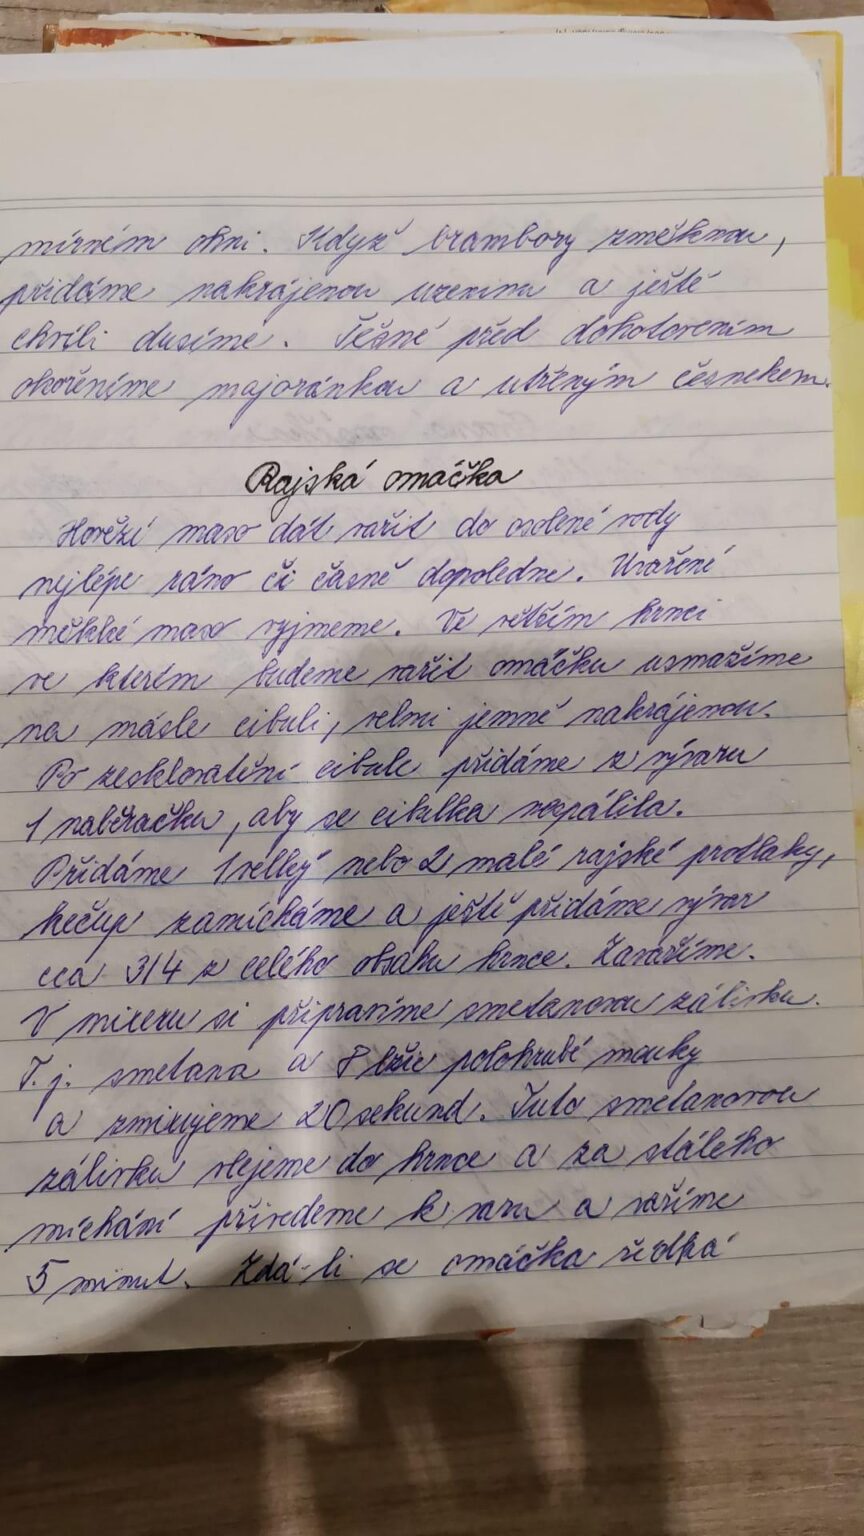 mírném ohni. Když brambory změknou,
přidáme nakrájenou uzeninu a ještě
chvíli dusíme. Těsně před dohotovením
okořeníme majoránkou a utřeným česnekem.
Rajská omáčka
Hovězí maso dát vařit do osolené vody
nejlépe ráno či časně dopoledne. Uvařené
měkké maso vyjmeme. Ve větším hrnci
ve kterém budeme vařit omáčku usmažíme
na másle cibuli, velmi jemně nakrájenou.
Po zesklovatění cibule přidáme z vývaru
1 naběračku, aby se cibulka nespálila.
Přidáme 1 velký nebo 2 malé rajské protlaky,
kečup zamícháme a ještě přidáme vývar
cca 3/4 z celého obsahu hrnce. Zavaříme.
V mixeru si připravíme smetanovou zálivku.
T.j. smetana a 8 lžic polohrubé mouky
a zmixujeme 20 sekund. Tuto smetanovou
zálivku vlejeme do hrnce a za stálého
míchání přivedeme k varu a vaříme
5 minut. Zdá-li se omáčka řídká